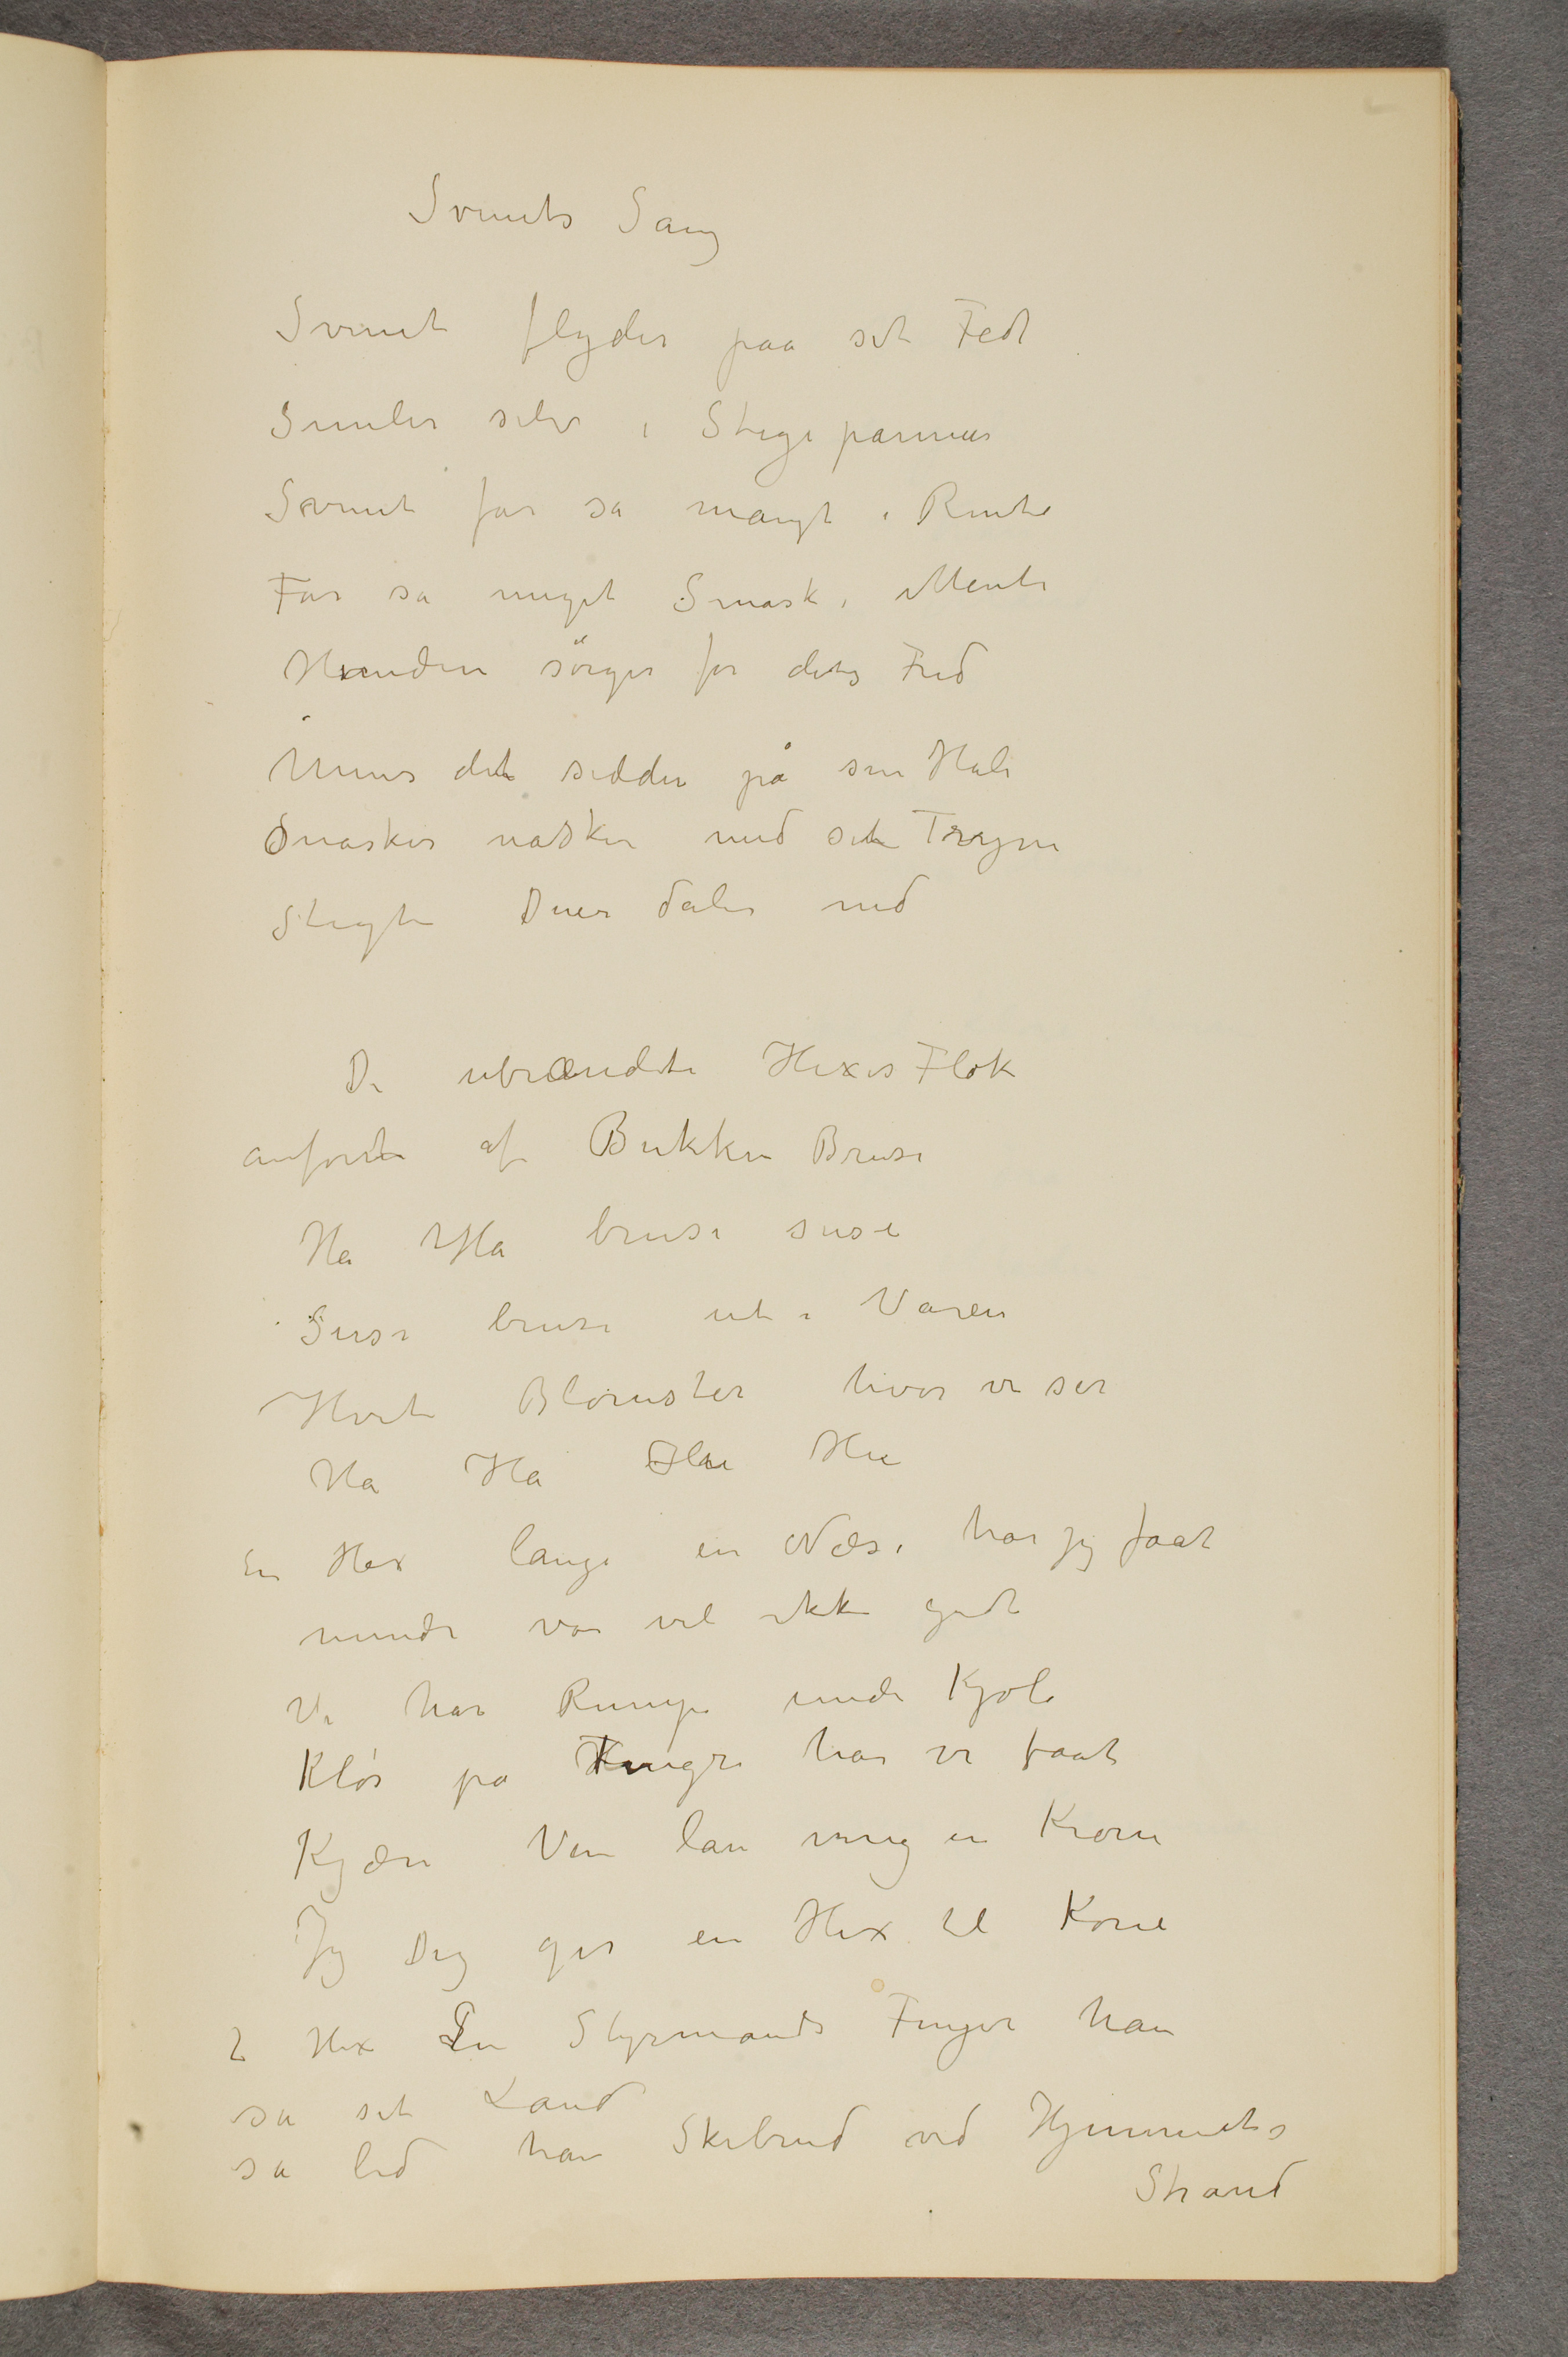 Svinets Sang
Svinet flyder paa sit Fedt
Smiler selv i Stegepannen
Svinet får sa mangt i Rente
Får sa meget Smask i Mente
Hunden sörger for dets Fred
Mens det sidder på sin Hale
Snasker nasker med sit Tryne
Stegte Duer daler ned
De ubrændte Hexes Flok
anforte af Bukken Bruse
Ha Ha bruse suse
Suse bruse ut i Våren
Hvite Blomster hvor vi ser
Ha Ha Hu Hu
En Hex lange en Næse har jeg faat
mindre var vel ikke godt
Vi har Rumpe under Kjole
Klör pa Fingre har vi faat
Kjære Ven lån mig en Krone
Jeg Dig gir en Hex til Kone
2 Hex En Styrmands Finger han
sa sit Land
sa led han Skibrud ved Hjemmets
Strand